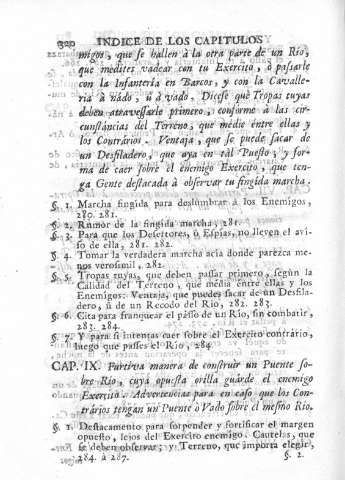 320 INDICE DE LOS CAPITULOS
migos, que se hallen à la otra parte de un Rio,
que medites vadear con tu Exercito, ò passarle
con la Infanterìa en Barcos, y con la Cavalle-
rìa à nado, ù à vado. Dicese què Tropas tuyas
deben atravessarle primero, conforme à las cir-
cunstancias del Terreno, que medie entre ellas y
los Contrarios. Ventaja, que se puede sacar de
un Desfiladero, que aya en tal Puesto; y for-
ma de caer sobre el enemigo Exercito, que ten-
ga Gente destacada à observar tu fingida marcha.
§. 1. Marcha fingida para deslumbrar à los Enemigos,
280. 281.
§. 2. Rumor de la fingida marcha, 281.
§. 3. Para que los Desertores, ò Espias, no lleven el avi-
so de ella, 281. 282.
§. 4. Tomar la verdadera marcha acia donde parezca me-
nos verosimil, 282.
§. 5. Tropas tuyas, que deben passar primero, segun la
Calidad del Terreno, que mèdia entre ellas y los
Enemigos: Ventaja, que puedes sacar de un Desfila-
dero, ù de un Recodo del Rio, 282. 283.
§. 6. Cita para franquear el passo de un Rio, sin combatir,
283. 284.
§. 7. Y para si intentas caer sobre el Exercito contrario,
luego que passes el Rio, 284.
CAP. IX. Furtiva manera de construir un Puente so-
bre Rio, cuya opuesta orilla guarde el enemigo
Exercito. Advertencias para en caso que los Con-
trarios tengan un Puente ò Vado sobre el mesmo Rio.
§. 1. Destacamento para sorpender y fortificar el margen
opuesto, lejos del Exercito enemigo. Cautelas, que
se deben observar; y Terreno, que importa elegir,
284. à 287. §. 2.